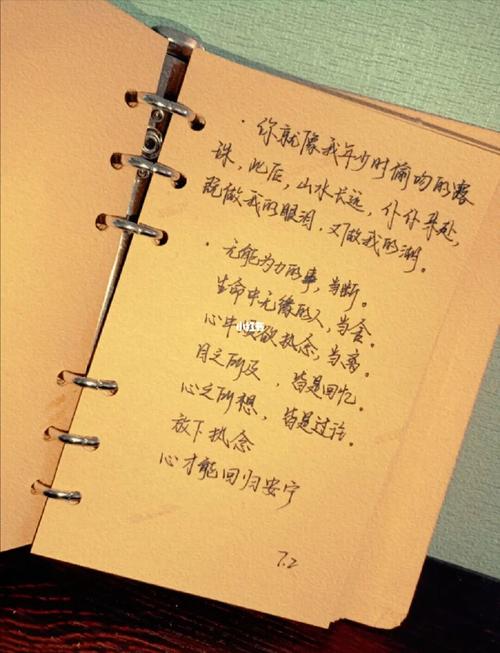 · 你就像我年少时偷吻的露
珠，此后，山水长远，仆仆来处，
既做我的眼泪，又做我的湖。
· 无能为力的事，当断。
生命中无缘的人，当舍。
小红书
心中欲执念，当离。
目之所及，皆是回忆。
心之所想，皆是过往。
放下执念
心才能回归安宁
7.2